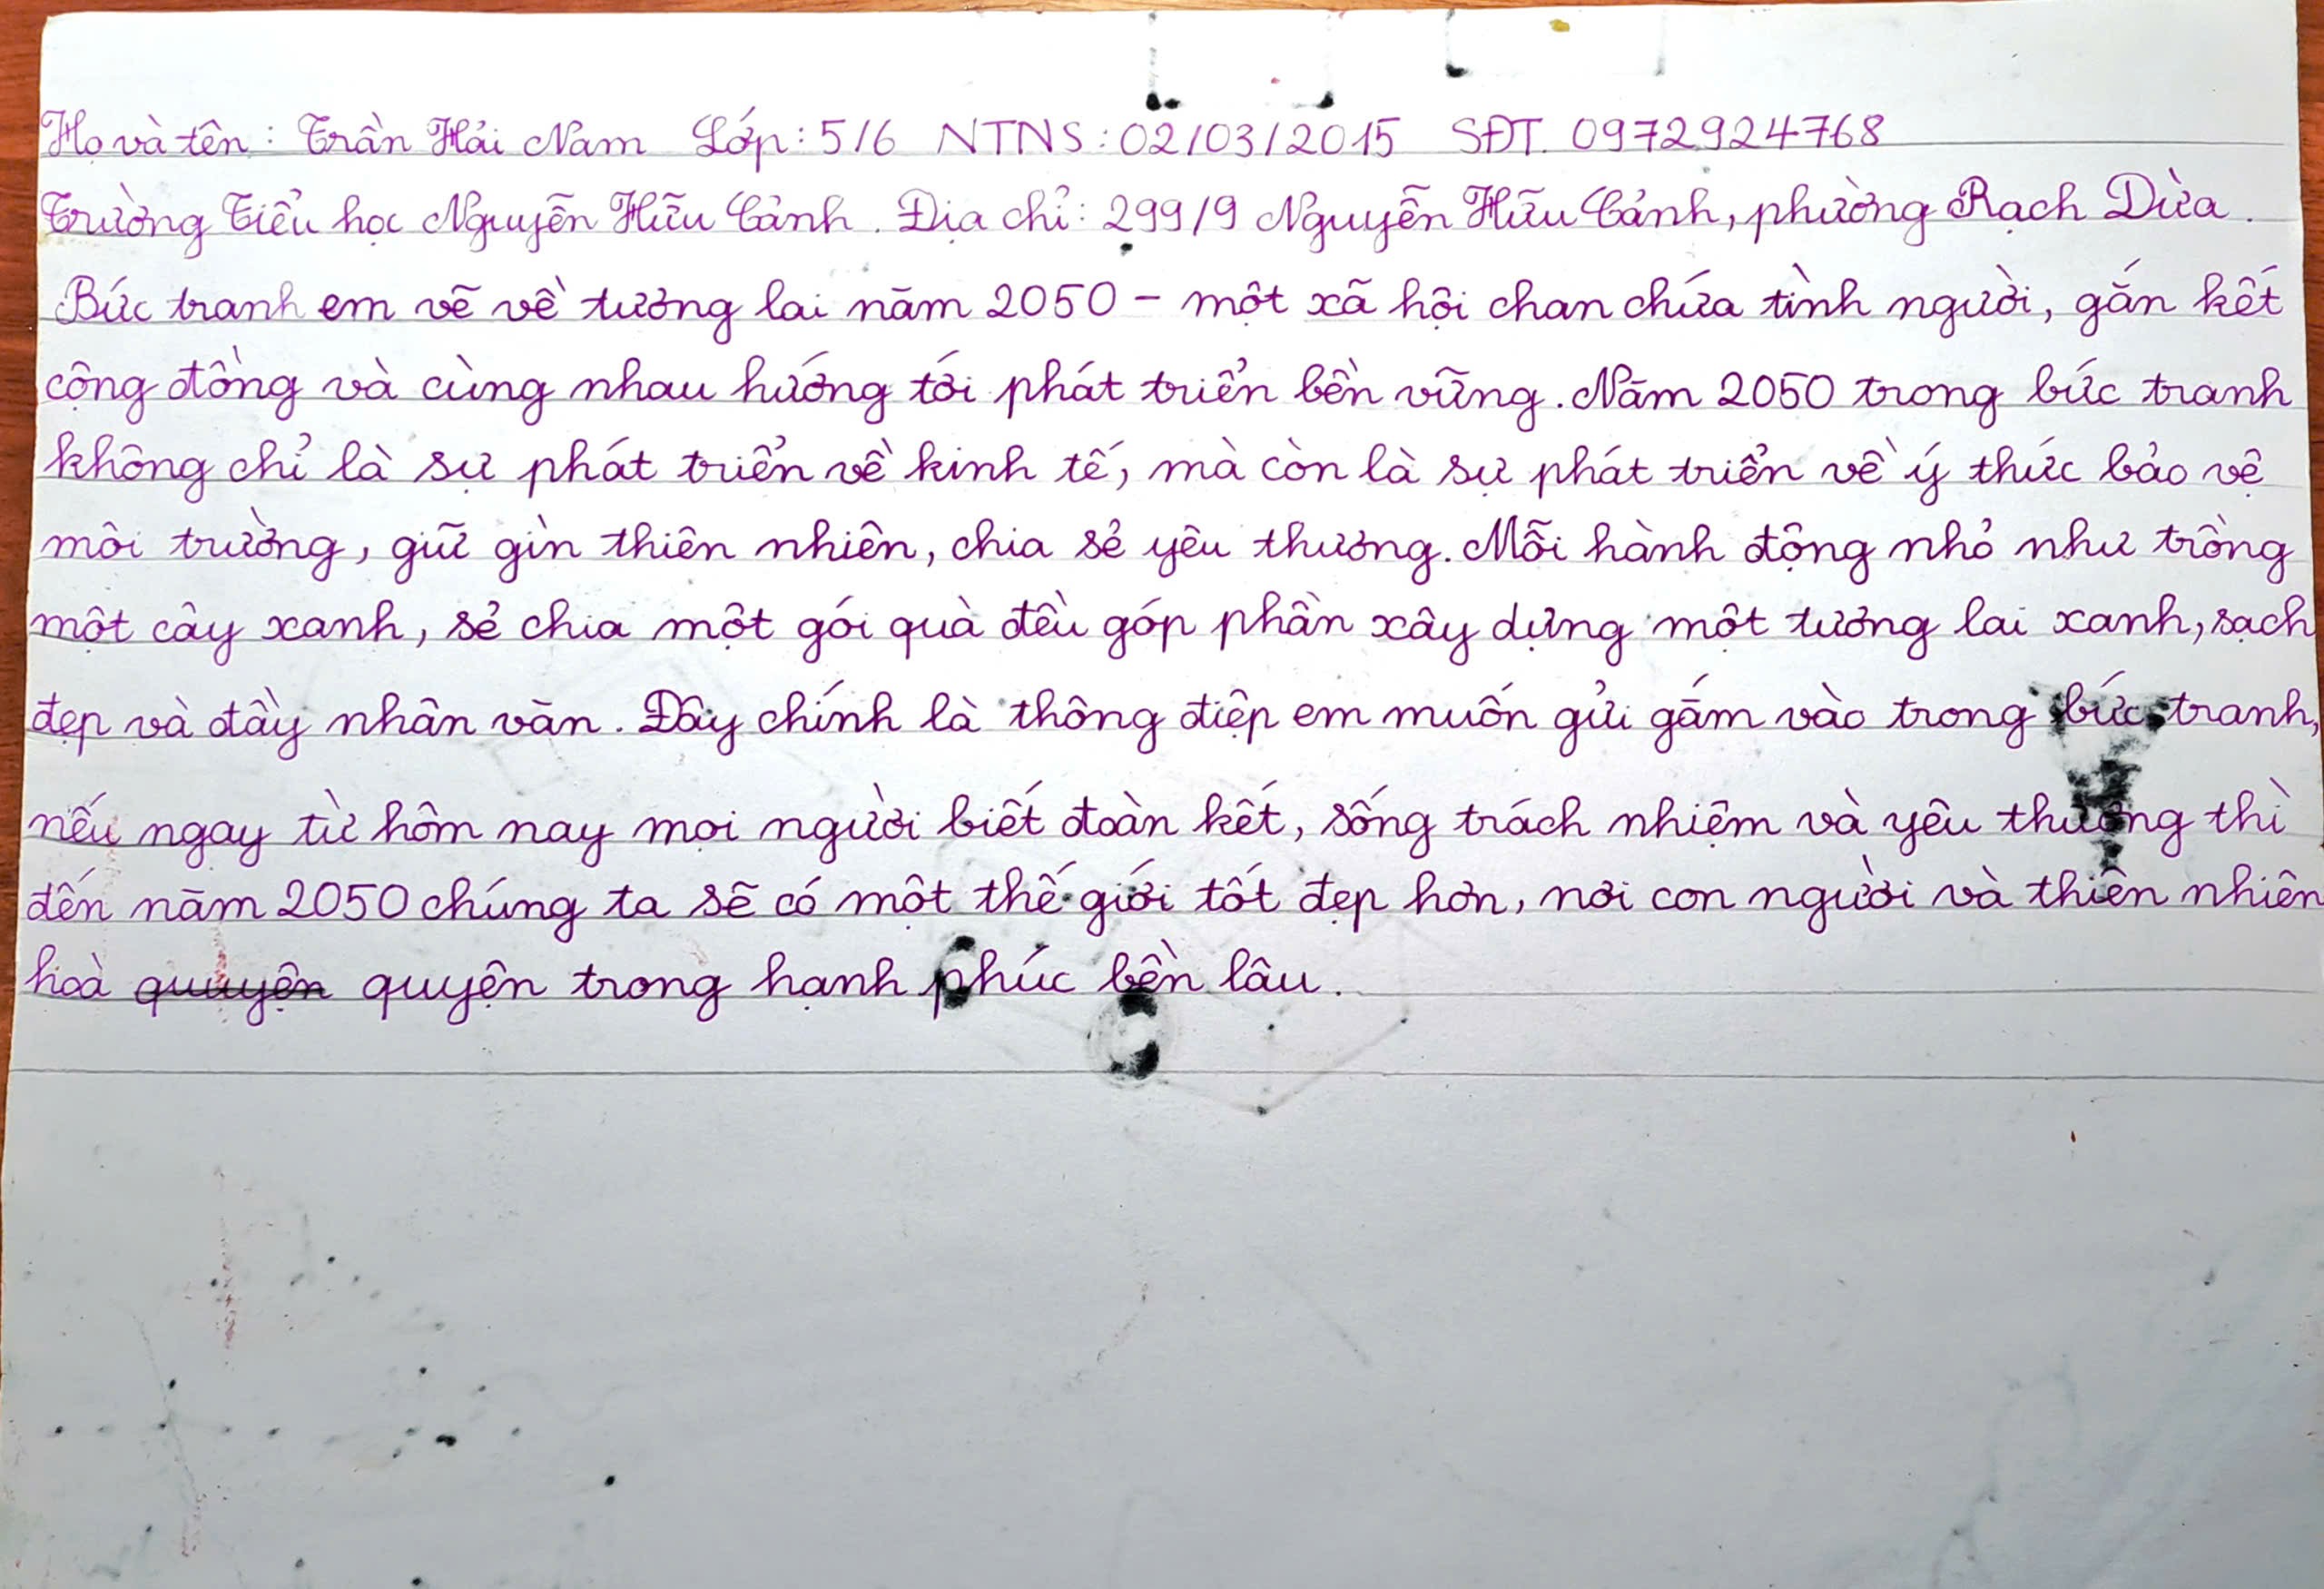 Họ và tên : Trần Hải Nam Lớp: 5/6 NTNS: 02/03/2015 SĐT. 0972924768
Trường Tiểu học Nguyễn Hữu Cảnh. Địa chỉ: 299/9 Nguyễn Hữu Cảnh, phường Rạch Dừa.
Bức tranh em vẽ về tương lai năm 2050 – một xã hội chan chứa tình người, gắn kết
cộng đồng và cùng nhau hướng tới phát triển bền vững. Năm 2050 trong bức tranh
không chỉ là sự phát triển về kinh tế, mà còn là sự phát triển về ý thức bảo vệ
môi trường, giữ gìn thiên nhiên, chia sẻ yêu thương. Mỗi hành động nhỏ như trồng
một cây xanh, sẻ chia một gói quà đều góp phần xây dựng một tương lai xanh, sạch
đẹp và đầy nhân văn. Đây chính là thông điệp em muốn gửi gắm vào trong bức tranh,
nếu ngay từ hôm nay mọi người biết đoàn kết, sống trách nhiệm và yêu thương thì
đến năm 2050 chúng ta sẽ có một thế giới tốt đẹp hơn, nơi con người và thiên nhiên
hoà quyện trong hạnh phúc bền lâu.